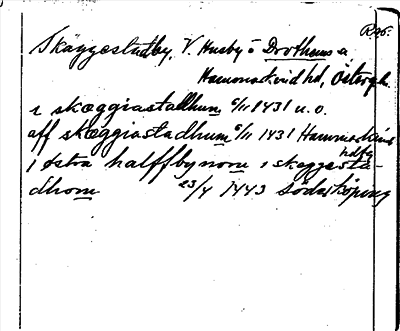 Rap.
Skäggestadby, V. Husby o Drothems a
Hammarkind hd, Östergl.
i skæggiastadhum 6/11 1431 u. o.
aff skæggiastadhum 6/11 1431 Hammarkinds
hdtg
i færa halffbynom i skæggesta-
dhom 23/4 1443 Söderköping